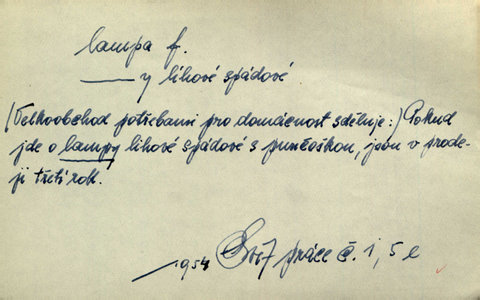 lampa f.
—— y lihové spádové
(Velkoobchod potřebami pro domácnost sděluje:) Pokud
jde o lampy lihové spádové s punčoškou, jsou v prode-
ji třetí rok.
1954 Svět práce č. 1, 5 e